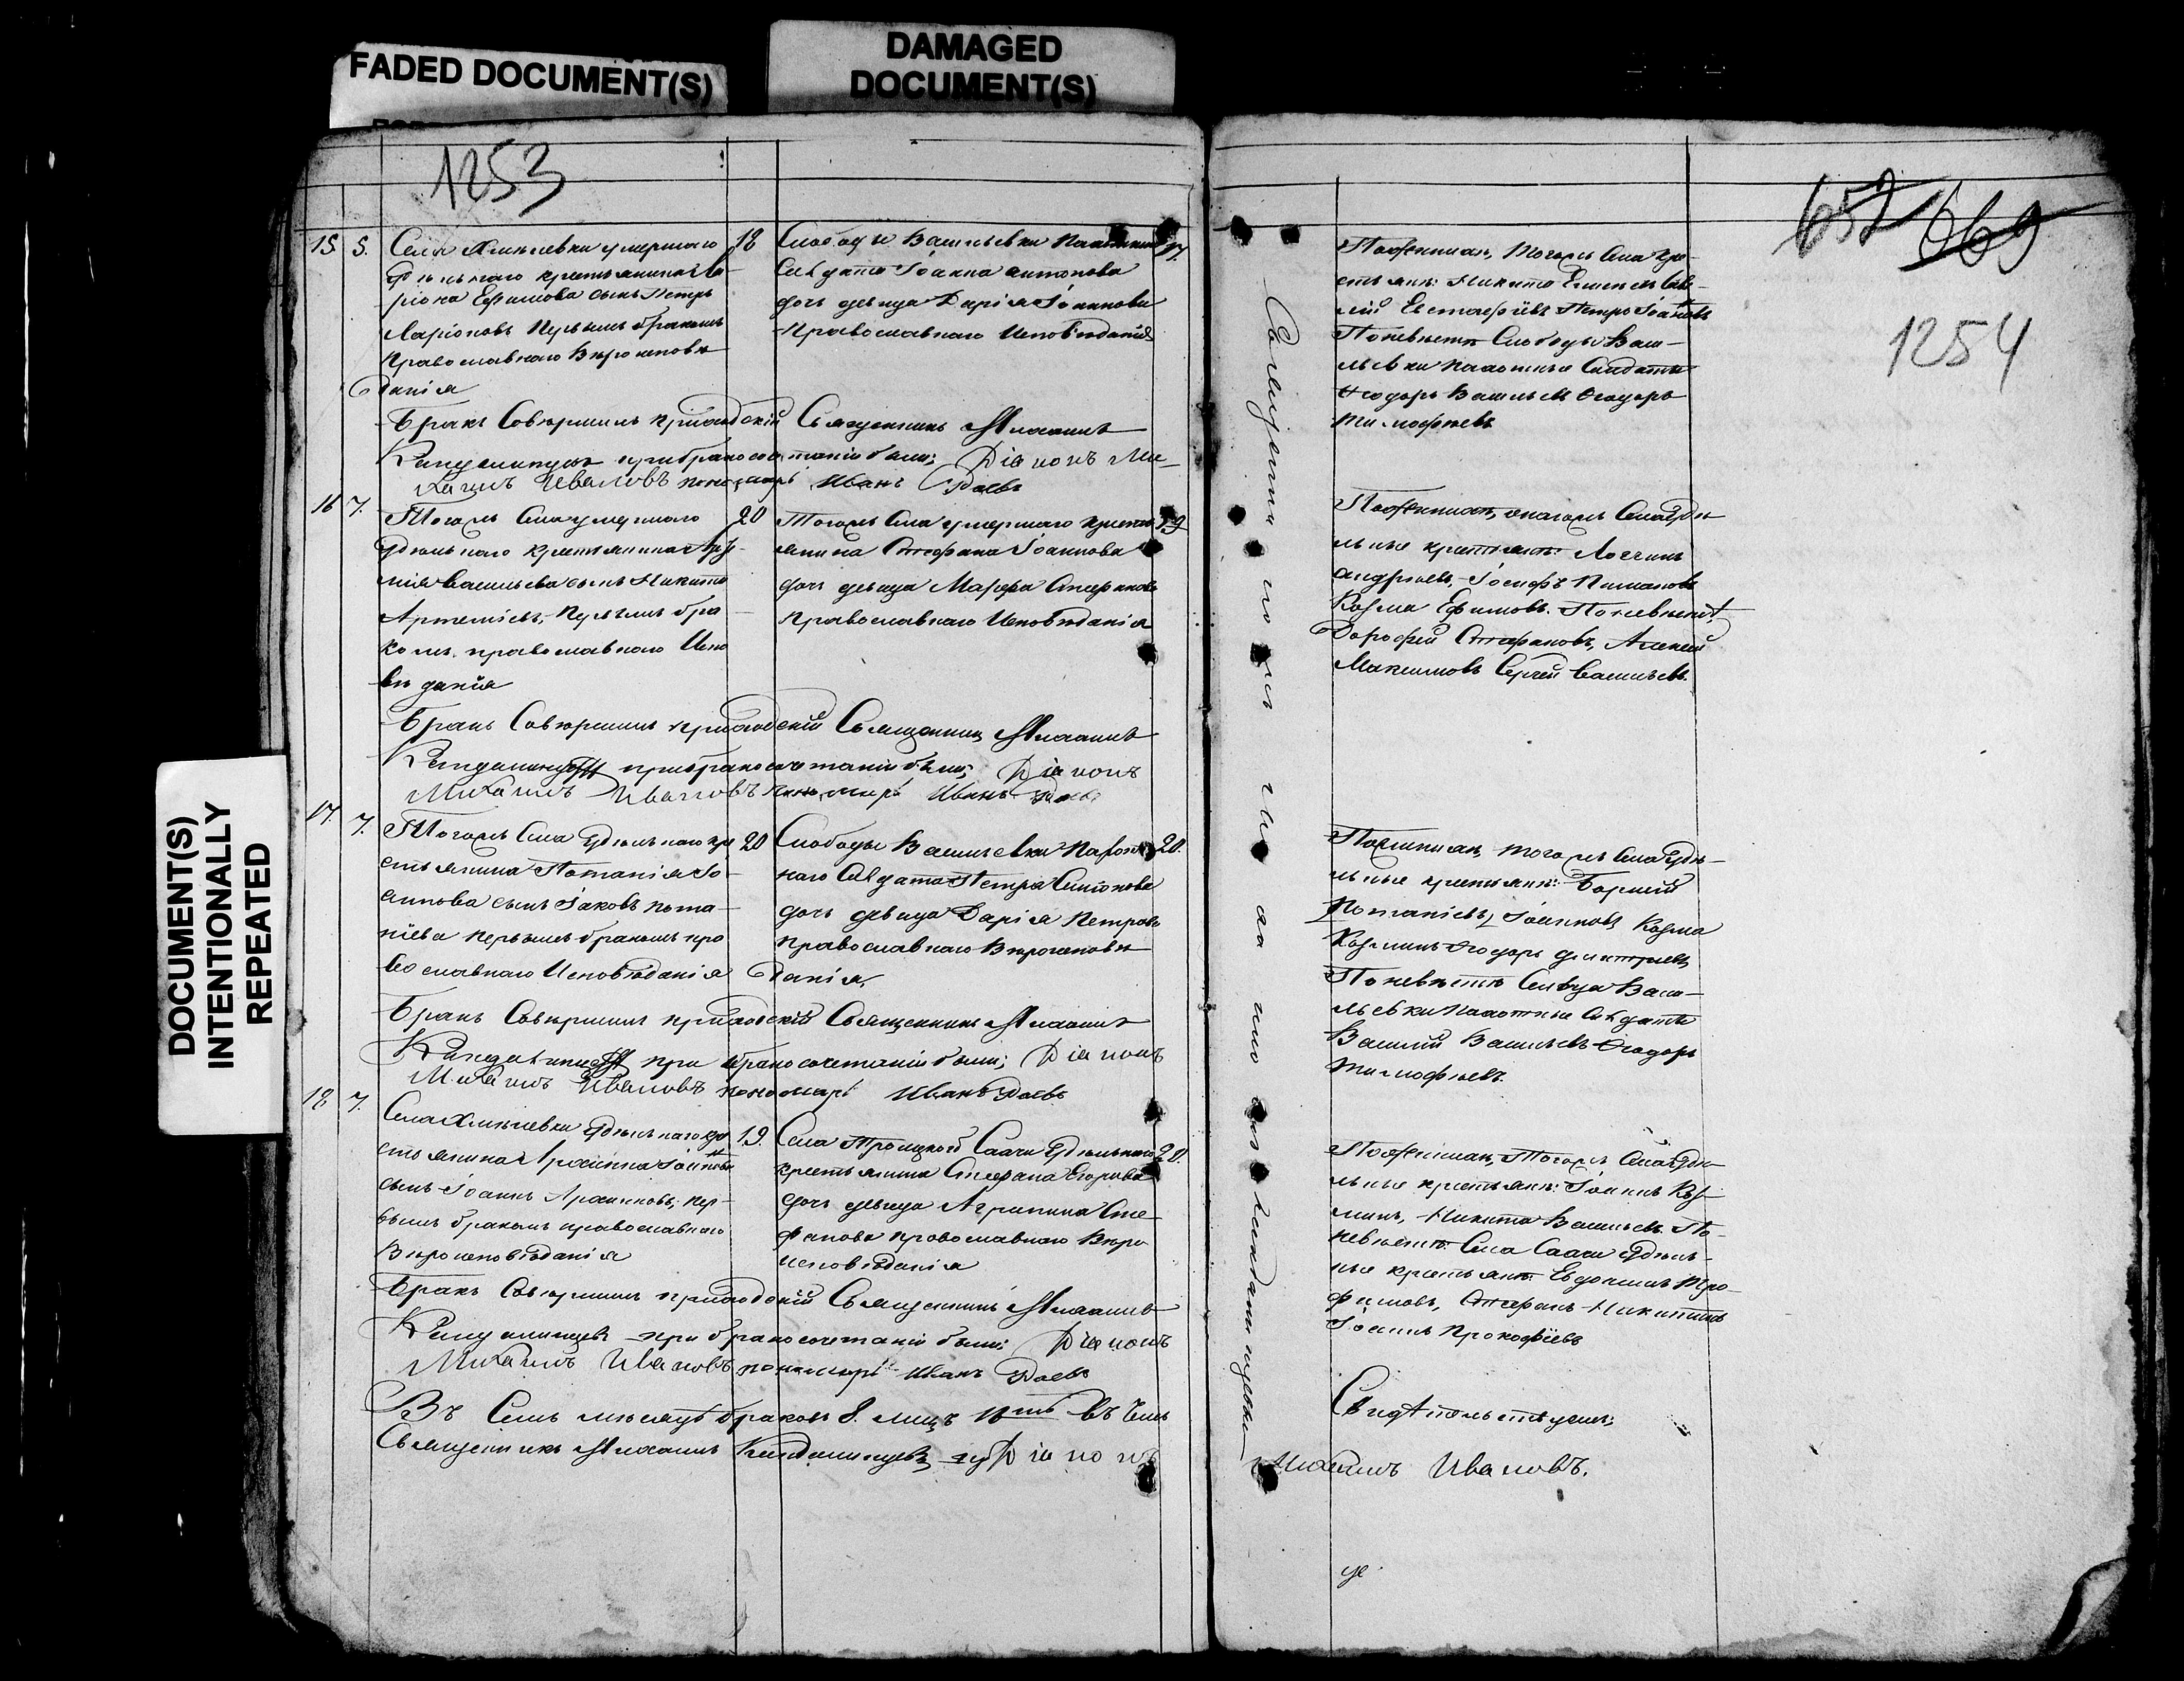 FADED DOCUMENT(S)
DAMAGED
DOCUMENT(S)
DOCUMENT(S)
INTENTIONALLY
REPEATED
1253
15 5. Села Хмелевки умершаго 18
удѣльнаго крестьянина Ла-
ріона Ефимова сынъ Петръ
Ларіоновъ первымъ бракомъ
православнаго вѣроисповѣ
данія
Слободы Васильевки Пахотнаго 17.
Солдата Іоанна Антонова
дочь дѣвица Дарія Іоаннова
православнаго Исповѣданія
Бракъ Совершилъ приходскій Священникъ Михаилъ
при бракосочетаніи были; Діаконъ Ми-
хаилъ Ивановъ пономарь Иванъ
16 7. Тогожъ Села умершаго 20
удѣльнаго крестьянина Арте-
мія Васильева сынъ Никита
Артеміевъ, первымъ бра-
комъ православнаго Испо
вѣданія
Тогожъ Села умершаго крестья 19
янина Стефана Іоаннова
дочь дѣвица Марфа Стефанова
православнаго Исповѣданія
Бракъ Совершилъ приходскій Священникъ Михаилъ
при бракосочетаніи были; Діаконъ
Михаилъ Ивановъ пономарь Иванъ
17. 7. Тогожъ Села удѣльнаго кре 20
стьянина Потапія Іо-
аннова сынъ Іаковъ Пота-
піевъ первымъ бракомъ пра
вославнаго Исповѣданія
Слободы Васильевки Пахот 20.
наго Солдата Петра Симіонова
дочь дѣвица Дарія Петрова
православнаго вѣроисповѣ
данія.
Бракъ Совершилъ приходскій Священникъ Михаилъ
при бракосочетаніи были; Діаконъ
Михаилъ Ивановъ пономарь Иванъ
18 7. Села Хмелевки удѣльнаго кре 19.
стьянина Архиппа Іоаннова
сынъ Іоаннъ Архиповъ, пер-
вымъ бракомъ православнаго
вѣроисповѣданія
Села Троицкой удѣльнаго 20.
крестьянина Стефана Егорова
дочь дѣвица Агрипина Сте
фанова православнаго вѣро
исповѣданія
Бракъ Совершилъ приходскій Священникъ Михаилъ
при бракосочетаніи были: Діаконъ
Михаилъ Ивановъ пономарь Иванъ
Въ Семъ мѣсяцѣ браковъ 8. лицъ
Священникъ Михаилъ Діаконъ
652 669
1254
Поженихѣ, тогожъ Села кре-
стьянѣ: Никита
Евстафіевъ Петръ Іоанновъ
Поневѣстѣ Слободы Васи-
льевки пахотные Солдаты
Ѳеодоръ Васильевъ Ѳеодоръ
Тимофѣевъ
Поженихѣ, тогожъ Села удѣ
льные крестьянѣ:
Андреевъ, Іосифъ
Козма Ефимовъ. Поневѣстѣ
Дорофей Стефановъ, Алексей
Максимовъ Сергей Васильевъ.
Поженихѣ, тогожъ Села удѣ-
льные крестьянѣ:
Потапіевъ, Іоанновъ Козма
Козминъ Ѳеодоръ Дмитріевъ
Поневѣстѣ Васи-
льевки пахотные Солдаты
Василій Васильевъ Ѳеодоръ
Тимофѣевъ.
Поженихѣ, Тогожъ Села удѣ-
льные крестьянѣ: Іоаннъ Коз-
минъ, Никита Васильевъ. По-
невѣстѣ Села удѣль-
ные крестьянѣ: Евдокимъ Тро-
фимовъ, Стефанъ Никитинъ
Іоаннъ Прокофіевъ
Свидѣтельствуемъ;
Михаилъ Ивановъ.